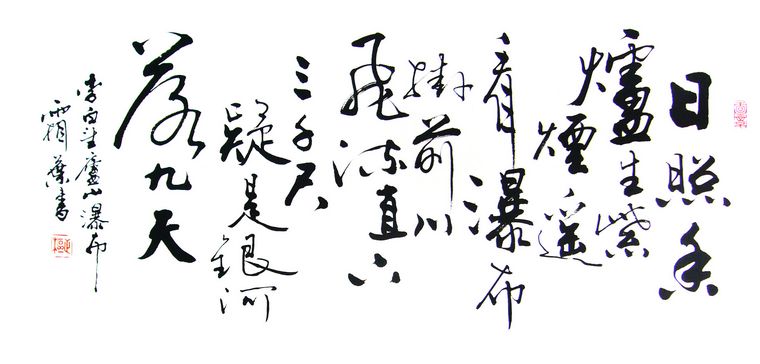 日照香
爐生紫
煙遥
看瀑布
掛前川
飛流直下
三千尺
疑是銀河
落九天
李白望廬山瀑布
霜葉書